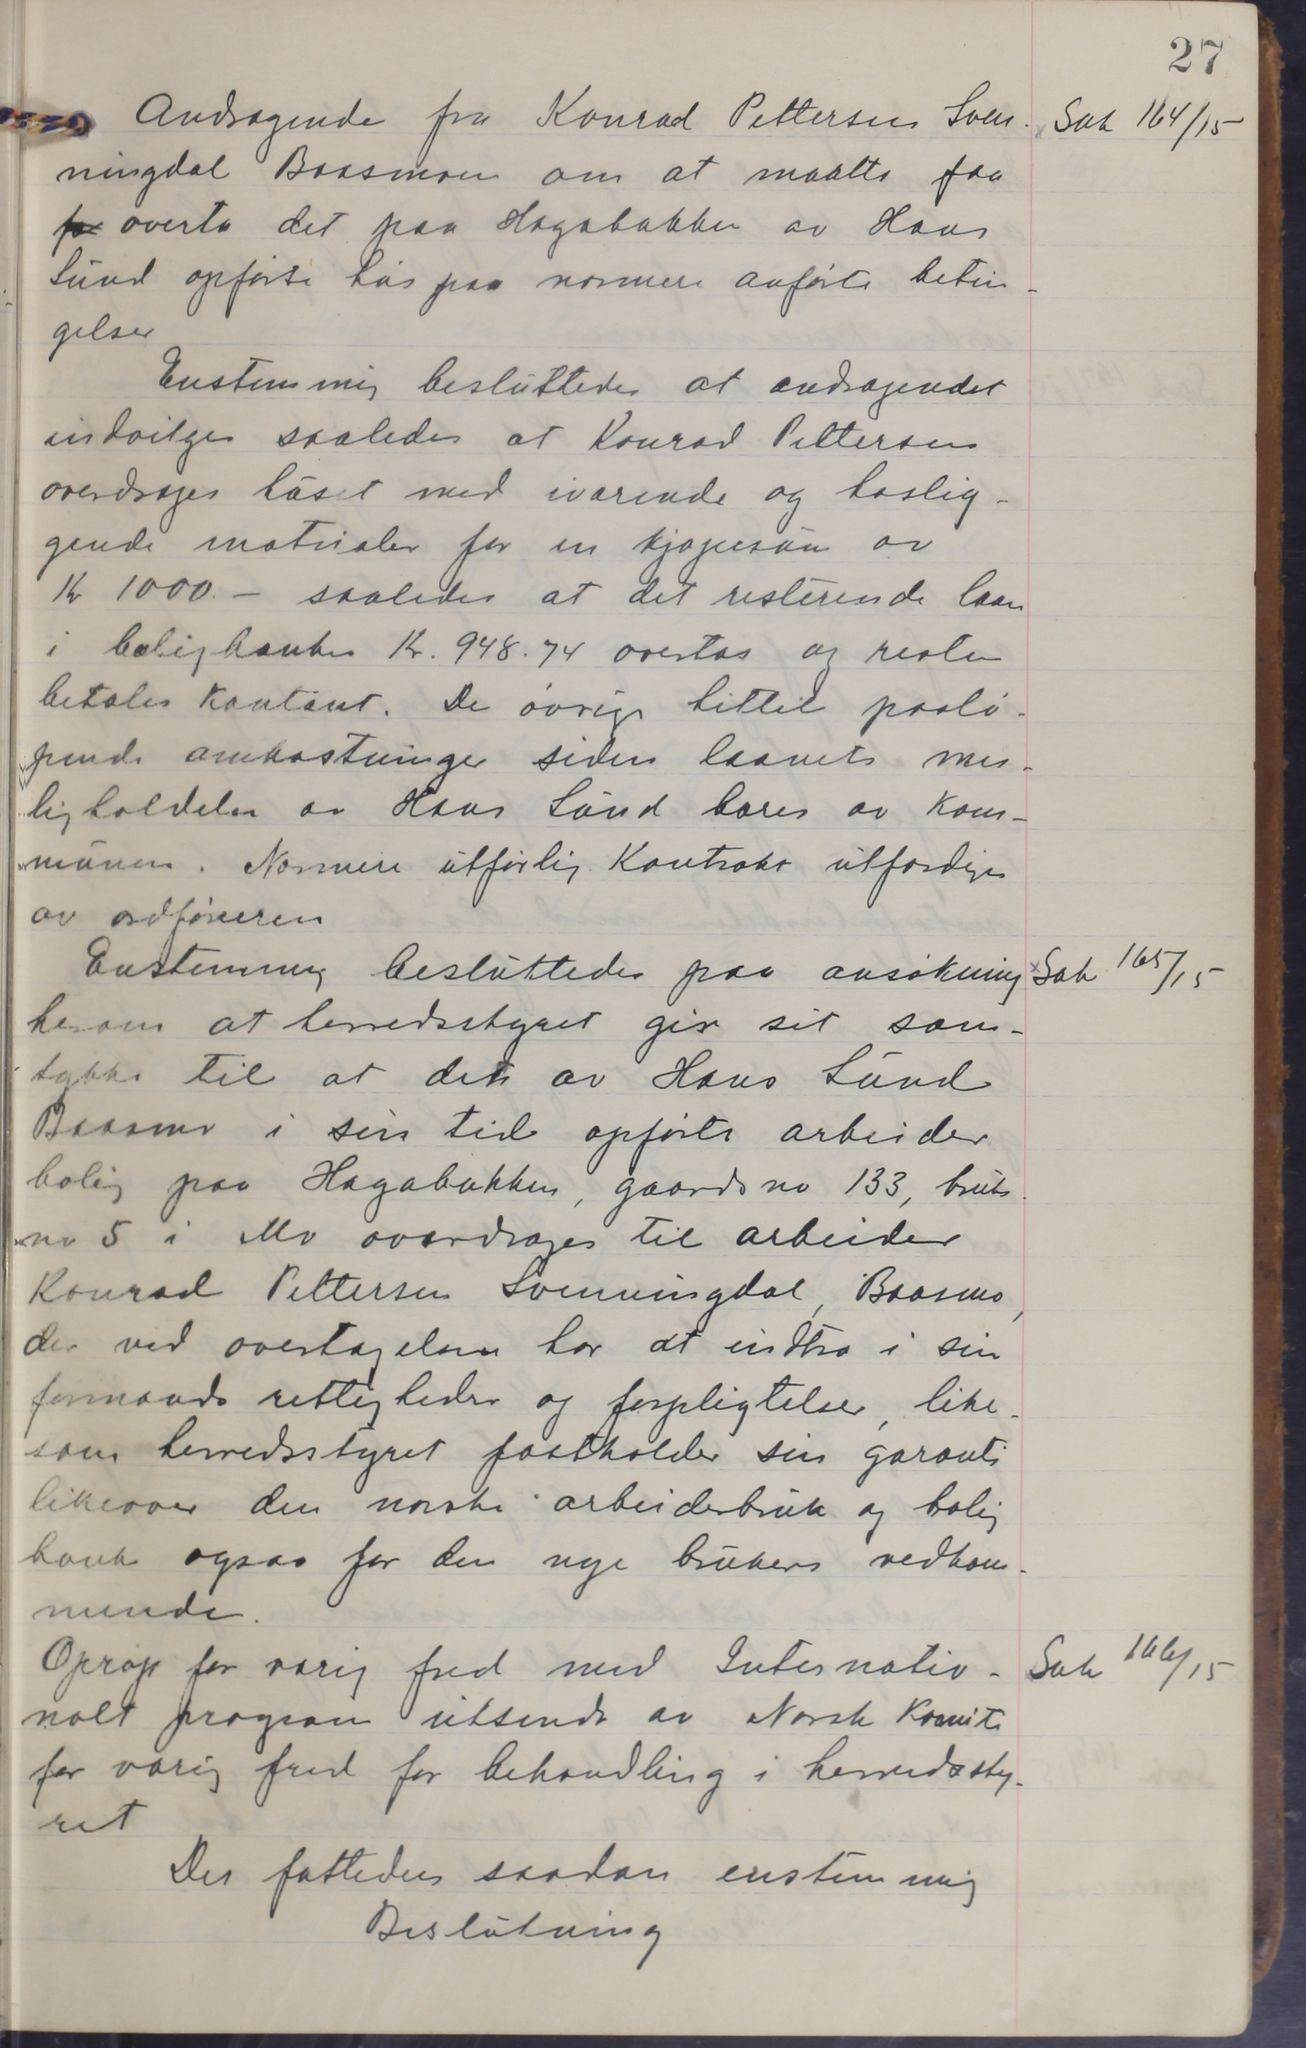 27
Andragende fra Konrad Pettersen Sven- Sak 164/15
ningdal Baasmoen om at maatte faa
fa overta det paa Hagabakken av Hans
Lund opførte hus paa nærmere anførte betin-
gelser
Enstemmig besluttedes at andragendet
indvilges saaledes at Konrad Pettersen
overdrages huset med ivarende og hoslig-
gende materialer for en kjøpesum av
Kr 1000.- saaledes at det resterende laan
i boligbanken Kr. 948.74 overtas og resten
betales kontant. De øvrige hittil paalø-
pende omkostninger siden laanets mis-
ligholdelse av Hans Lund bæres av kom-
munen. Nærmere utførlig kontrakt utfærdiges
av ordføreren
Enstemmig besluttedes paa ansøkning Sak 165/15
herom at herredsstyret gir sit sam-
tykke til at den av Hans Lund
Baasmo i sin tid opførte arbeider
bolig paa Hagabakken, gaards no 133, bruks
no 5 i Mo overdrages til arbeider
Konrad Pettersen Svenningdal, Baasmo,
der ved overtagelsen har at indtra i sin
formands rettigheder og forpligtelser, like-
som herredsstyret fastholder sin garanti
likeover den norske arbeiderbruk og bolig
bank ogsaa for den nye brukers vedkom-
mende.
Oprop for varig fred med Internatio- Sak 166/15
nalt program utsendt av Norsk Komite
for varig fred for behandling i herredssty-
ret
Der fattedes saadan enstemmig
Beslutning